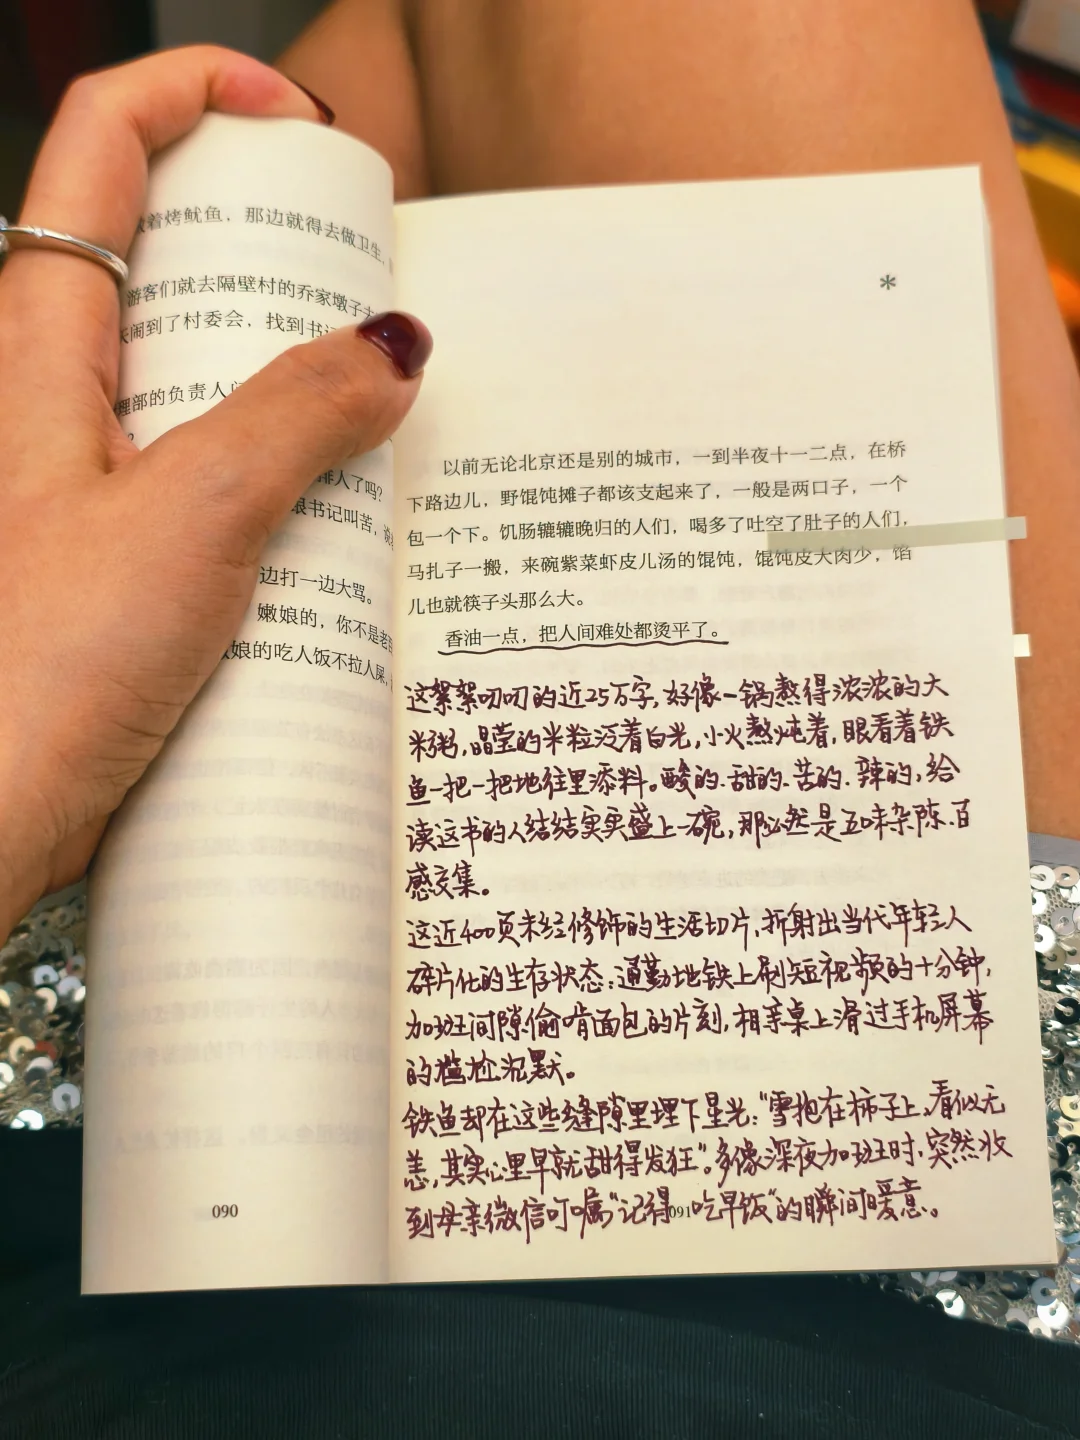 着烤鱿鱼，那边就得去做卫生，
游客们就去隔壁村的乔家墩子
闹到了村委会，找到书记
理部的负责人
？
排人了吗？
书记叫苦，说
边打一边大骂。
嫩娘的，你不是老
娘的吃人饭不拉人屎，
090
*
以前无论北京还是别的城市，一到半夜十一二点，在桥
下路边儿，野馄饨摊子都该支起来了，一般是两口子，一个
包一个下。饥肠辘辘晚归的人们，喝多了吐空了肚子的人们，
马扎子一搬，来碗紫菜虾皮儿汤的馄饨，馄饨皮大肉少，馅
儿也就筷子头那么大。
香油一点，把人间难处都烫平了。
这絮絮叨叨的近25万字，好像一锅熬得浓浓的大
米粥，晶莹的米粒泛着白光，小火熬炖着，眼看着铁
鱼一把一把地往里添料。酸的、甜的、苦的、辣的，给
读这书的人结结实实盛上一碗，那必然是五味杂陈、百
感交集。
这近400页未经修饰的生活切片，折射出当代年轻人
碎片化的生存状态：通勤地铁上刷短视频的十分钟，
加班间隙偷啃面包的片刻，相亲桌上滑过手机屏幕
的尴尬沉默。
铁鱼却在这些缝隙里埋下星光：“雪抱在柿子上，看似无
恙，其实心里早就甜得发狂”。多像深夜加班时，突然收
到母亲微信叮嘱“记得吃早饭”的瞬间暖意。
091